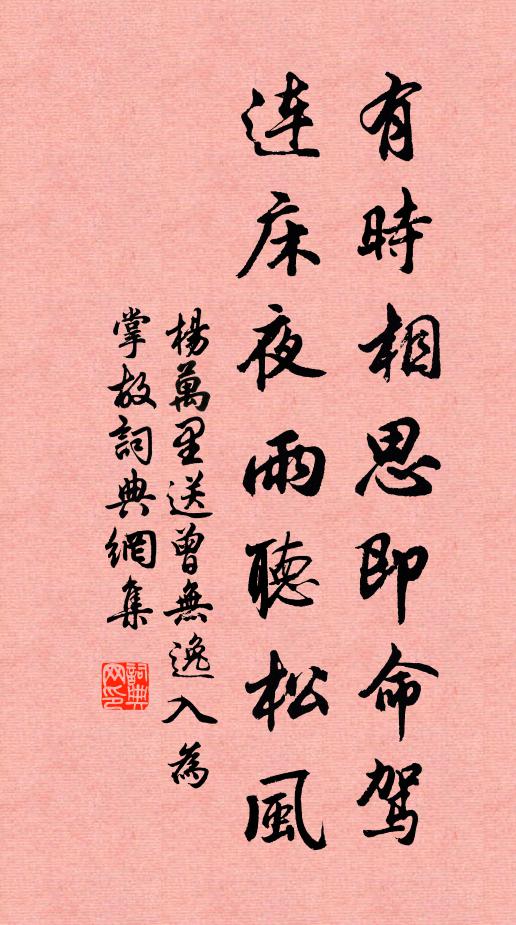 有時相思即命駕
連床夜雨聽松風
楊萬里送曾無逸入為
掌故詞典網集
詞典
网印